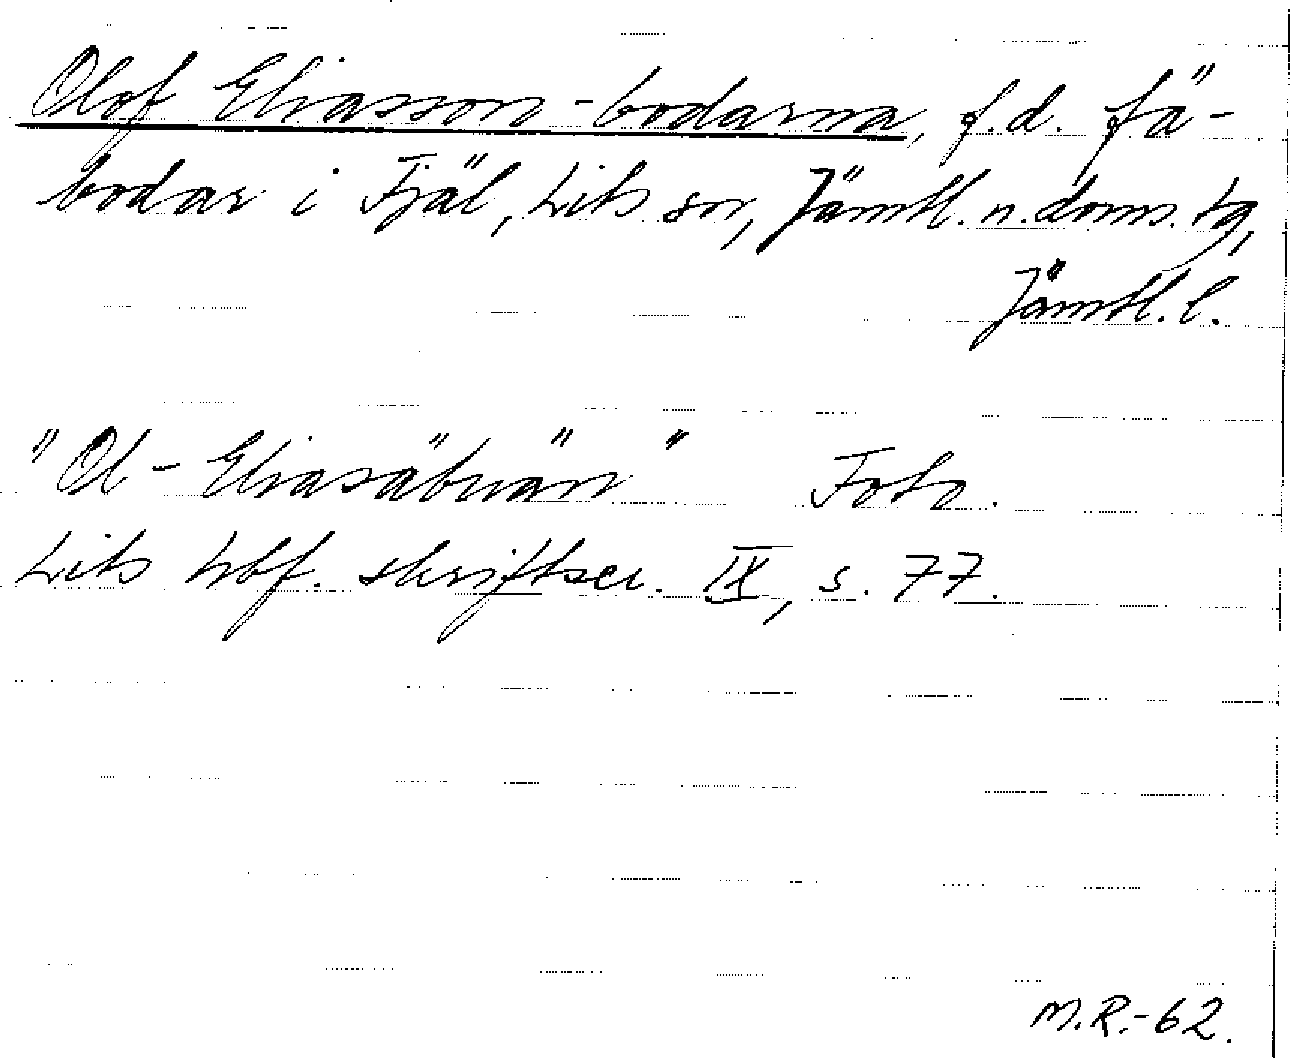 Olof Eliasson-bodarna, f.d. fä-
bodar i Fjäl, Lits sn, Jämtl. n. doms. tg,
Jämtl. l.
"Ol-Eliasäbuän" Foto.
Lits hbf. skriftser. IX, s. 77.
M.R.-62.